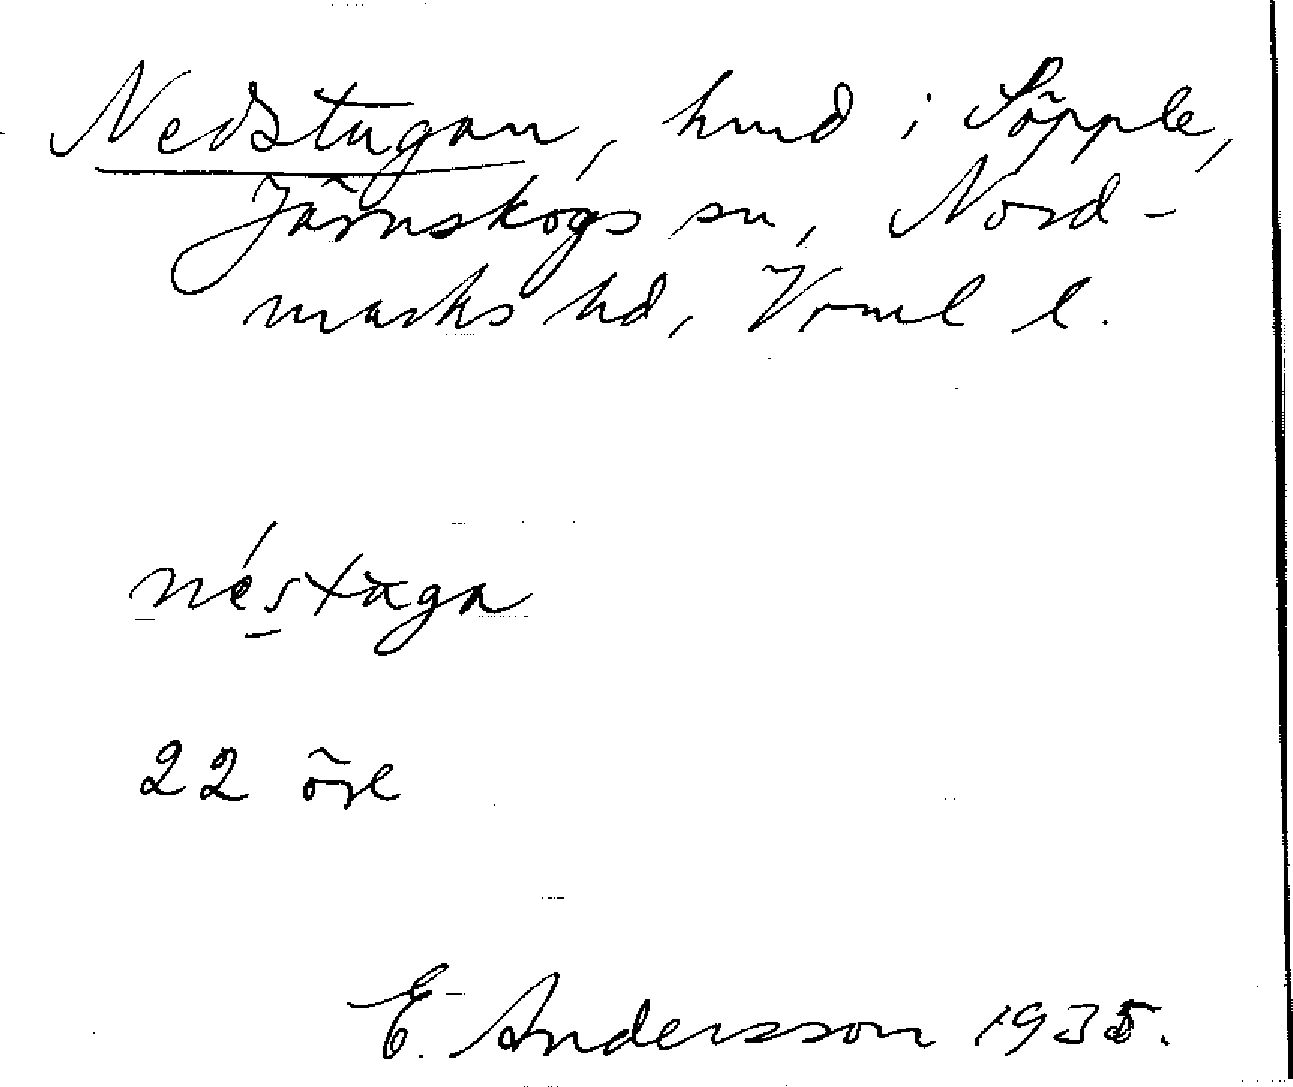 Nedstugan, hmd i Säpple,
Järnskogs sn, Nord-
marks hd, Vrml l.
néstaga
22 öre
E. Andersson 1935.